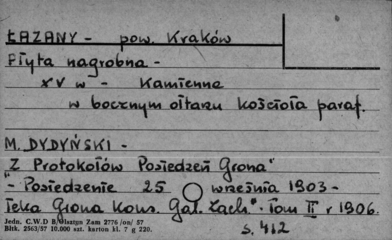 ŁAZANY - pow. Kraków
Płyta nagrobna -
XV w - Kamienne
w bocznym ołtarzu kościoła paraf.
M. DYDYŃSKI -
Z Protokołów Posiedzeń Grona"
"- Posiedzenie 25 września 1903 -
Teka Grona Kons. Gal. Zach". Tom II r 1906.
s. 412
Jedn. C.W.D B/Olsztyn Zam 2776 /on/ 57
Bltk. 2563/57 10.000 szt. karton kl. 7 g 220.